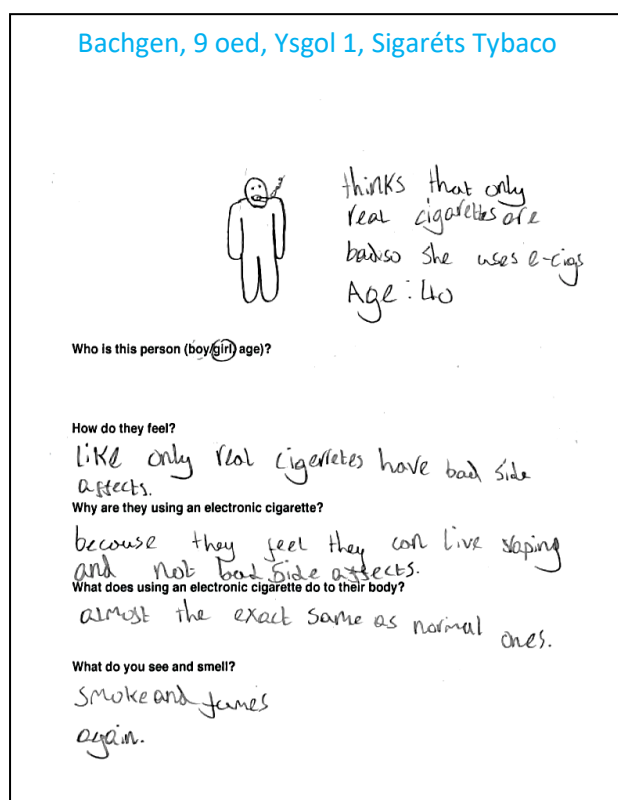 Bachgen, 9 oed, Ysgol 1, Sigaréts Tybaco
thinks that only
real cigarettes are
bad so she uses e-cigs
Age : 40
Who is this person (boy/girl, age)?
How do they feel?
Like only real cigerretes have bad side
affects.
Why are they using an electronic cigarette?
becouse they feel they can live vaping
and not bad side affects.
What does using an electronic cigarette do to their body?
almost the exact same as normal ones.
What do you see and smell?
smoke and fumes
again.